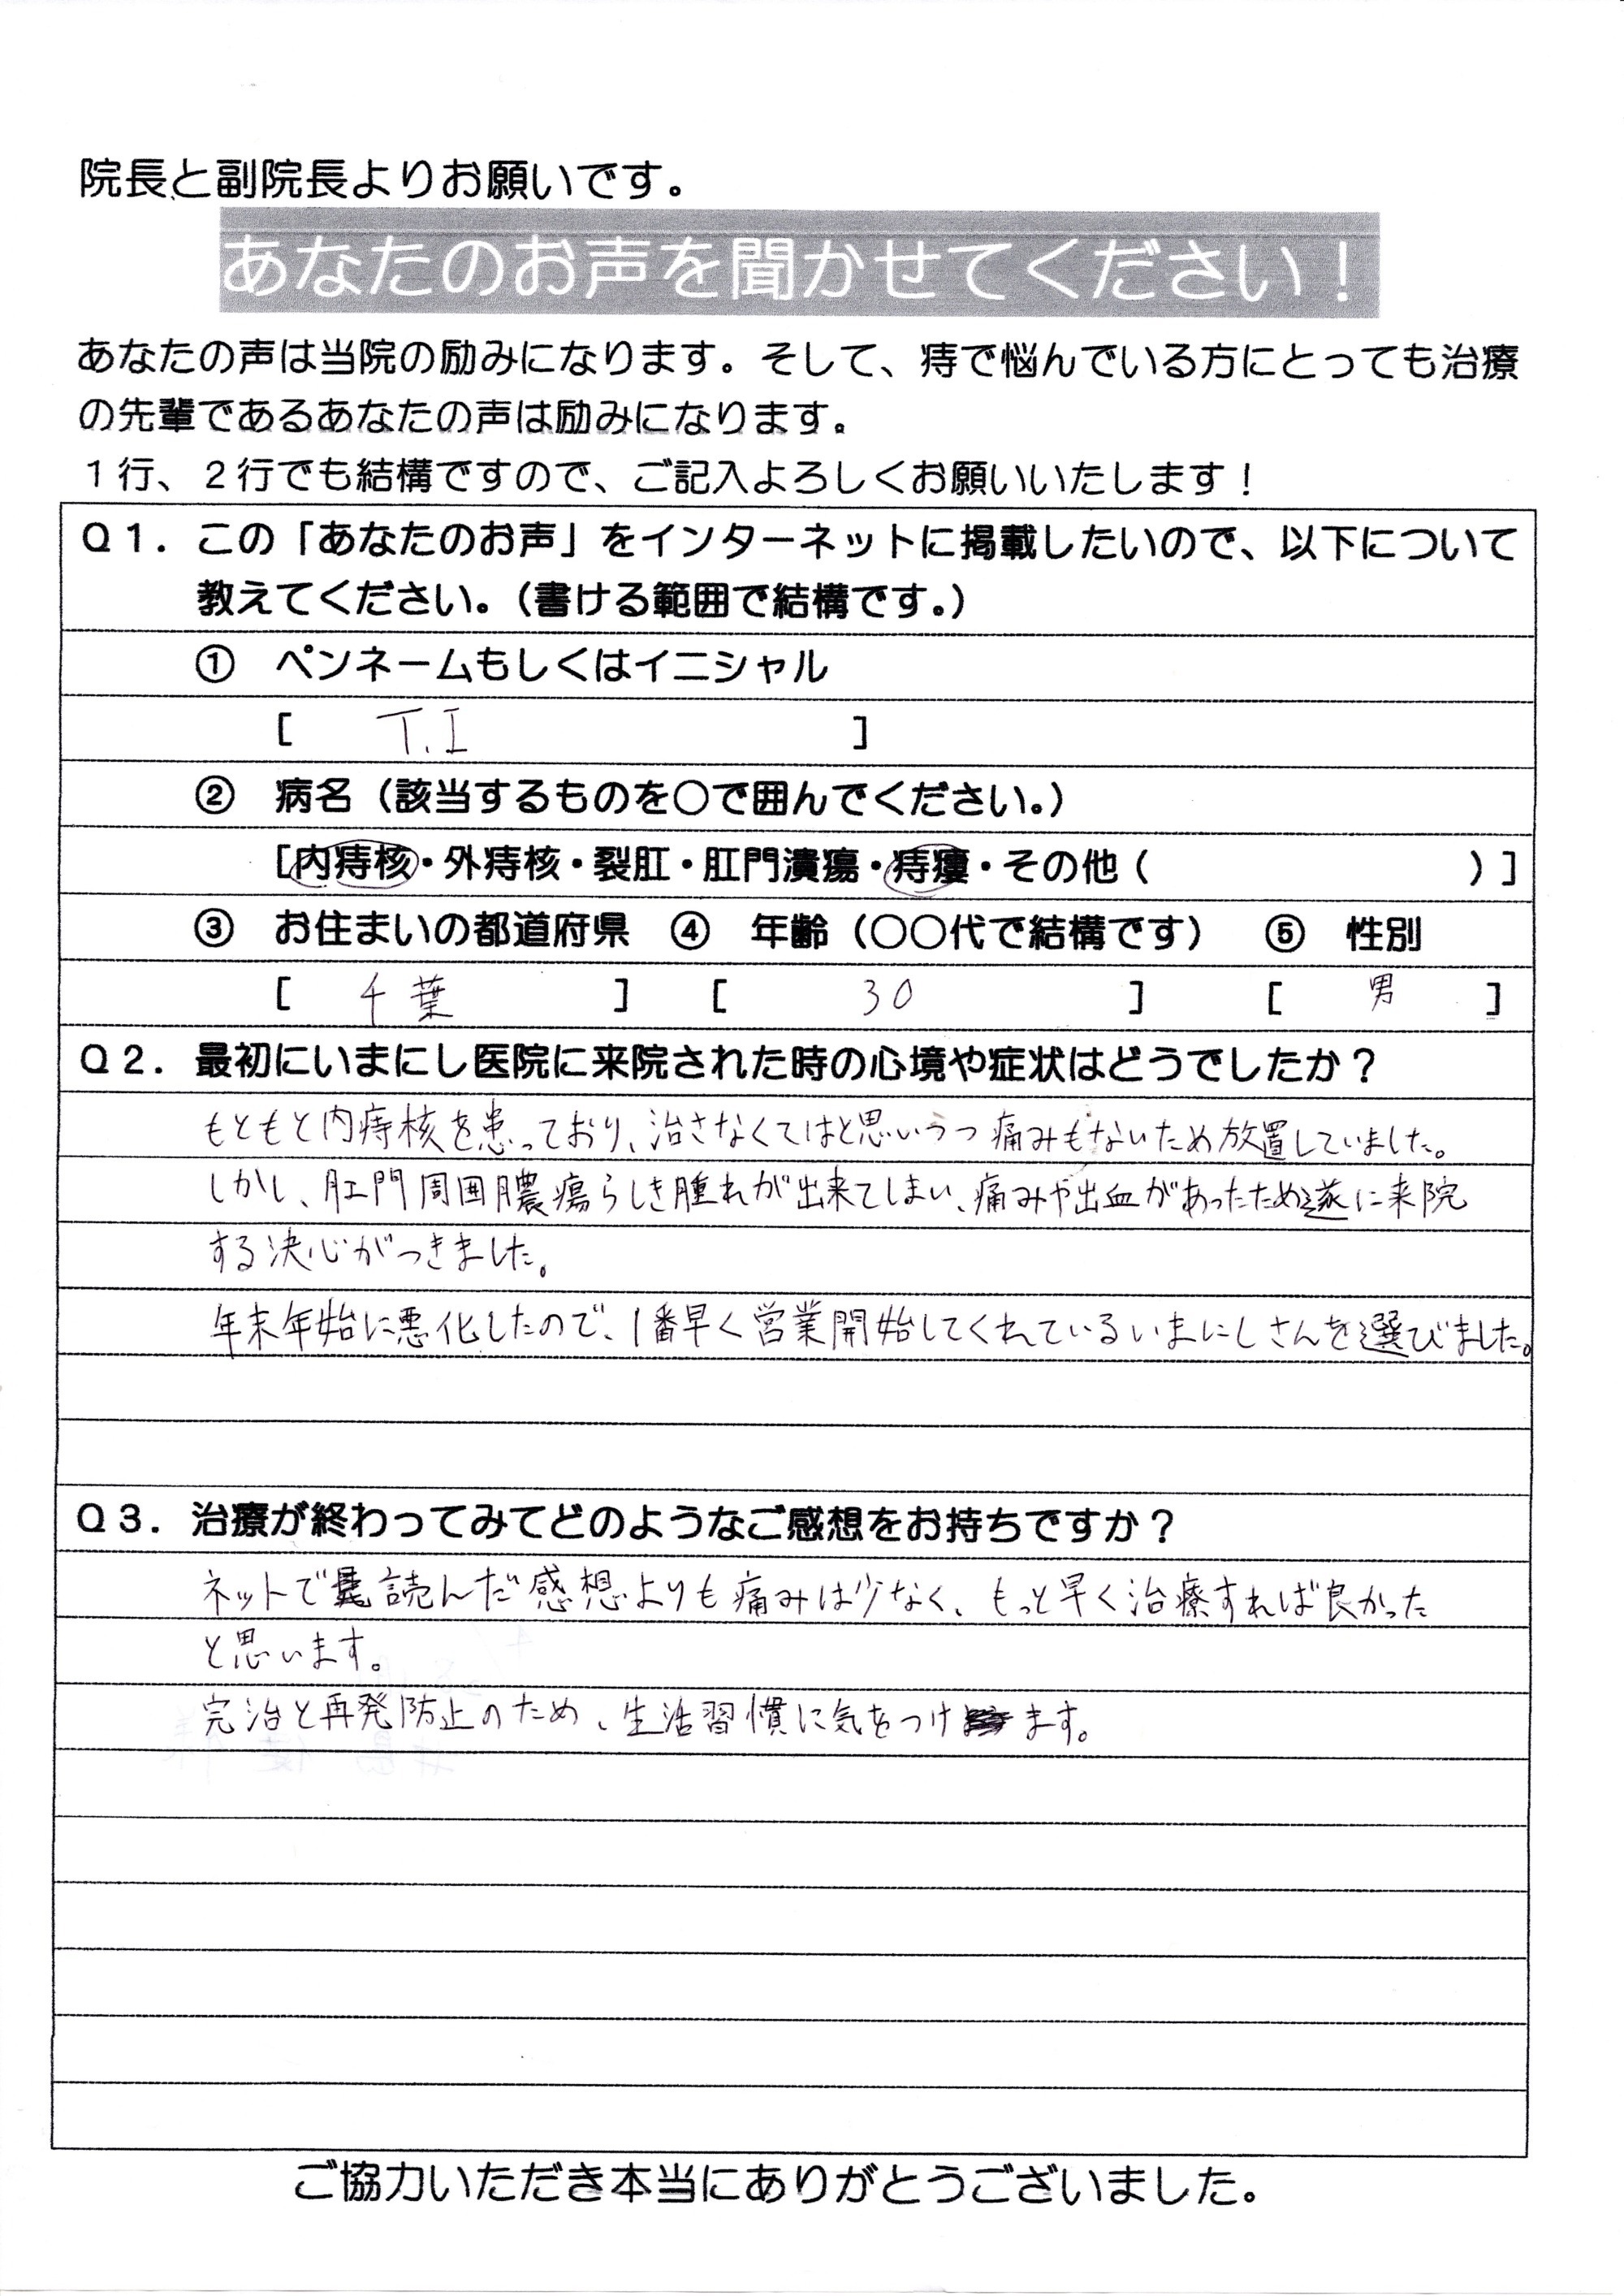 院長と副院長よりお願いです。
あなたのお声を聞かせてください！
あなたの声は当院の励みになります。そして、痔で悩んでいる方にとっても治療
の先輩であるあなたの声は励みになります。
１行、２行でも結構ですので、ご記入よろしくお願いいたします！
Ｑ１．この「あなたのお声」をインターネットに掲載したいので、以下について
教えてください。（書ける範囲で結構です。）
① ペンネームもしくはイニシャル
[ T.I ]
② 病名（該当するものを○で囲んでください。）
[内痔核・外痔核・裂肛・肛門潰瘍・痔瘻・その他（ ）]
③ お住まいの都道府県 ④ 年齢（○○代で結構です） ⑤ 性別
[ 千葉 ] [ 30 ] [ 男 ]
Ｑ２．最初にいまにし医院に来院された時の心境や症状はどうでしたか？
もともと内痔核を患っており、治さなくてはと思いうつ痛みもないため放置していました。
しかし、肛門周囲膿瘍らしき腫れが出来てしまい、痛みや出血があったため遂に来院
する決心がつきました。
年末年始に悪化したので、1番早く営業開始してくれているいまにしさんを選びました。
Ｑ３．治療が終わってみてどのようなご感想をお持ちですか？
ネットで読んだ感想よりも痛みは少なく、もっと早く治療すれば良かった
と思います。
完治と再発防止のため、生活習慣に気をつけます。
ご協力いただき本当にありがとうございました。